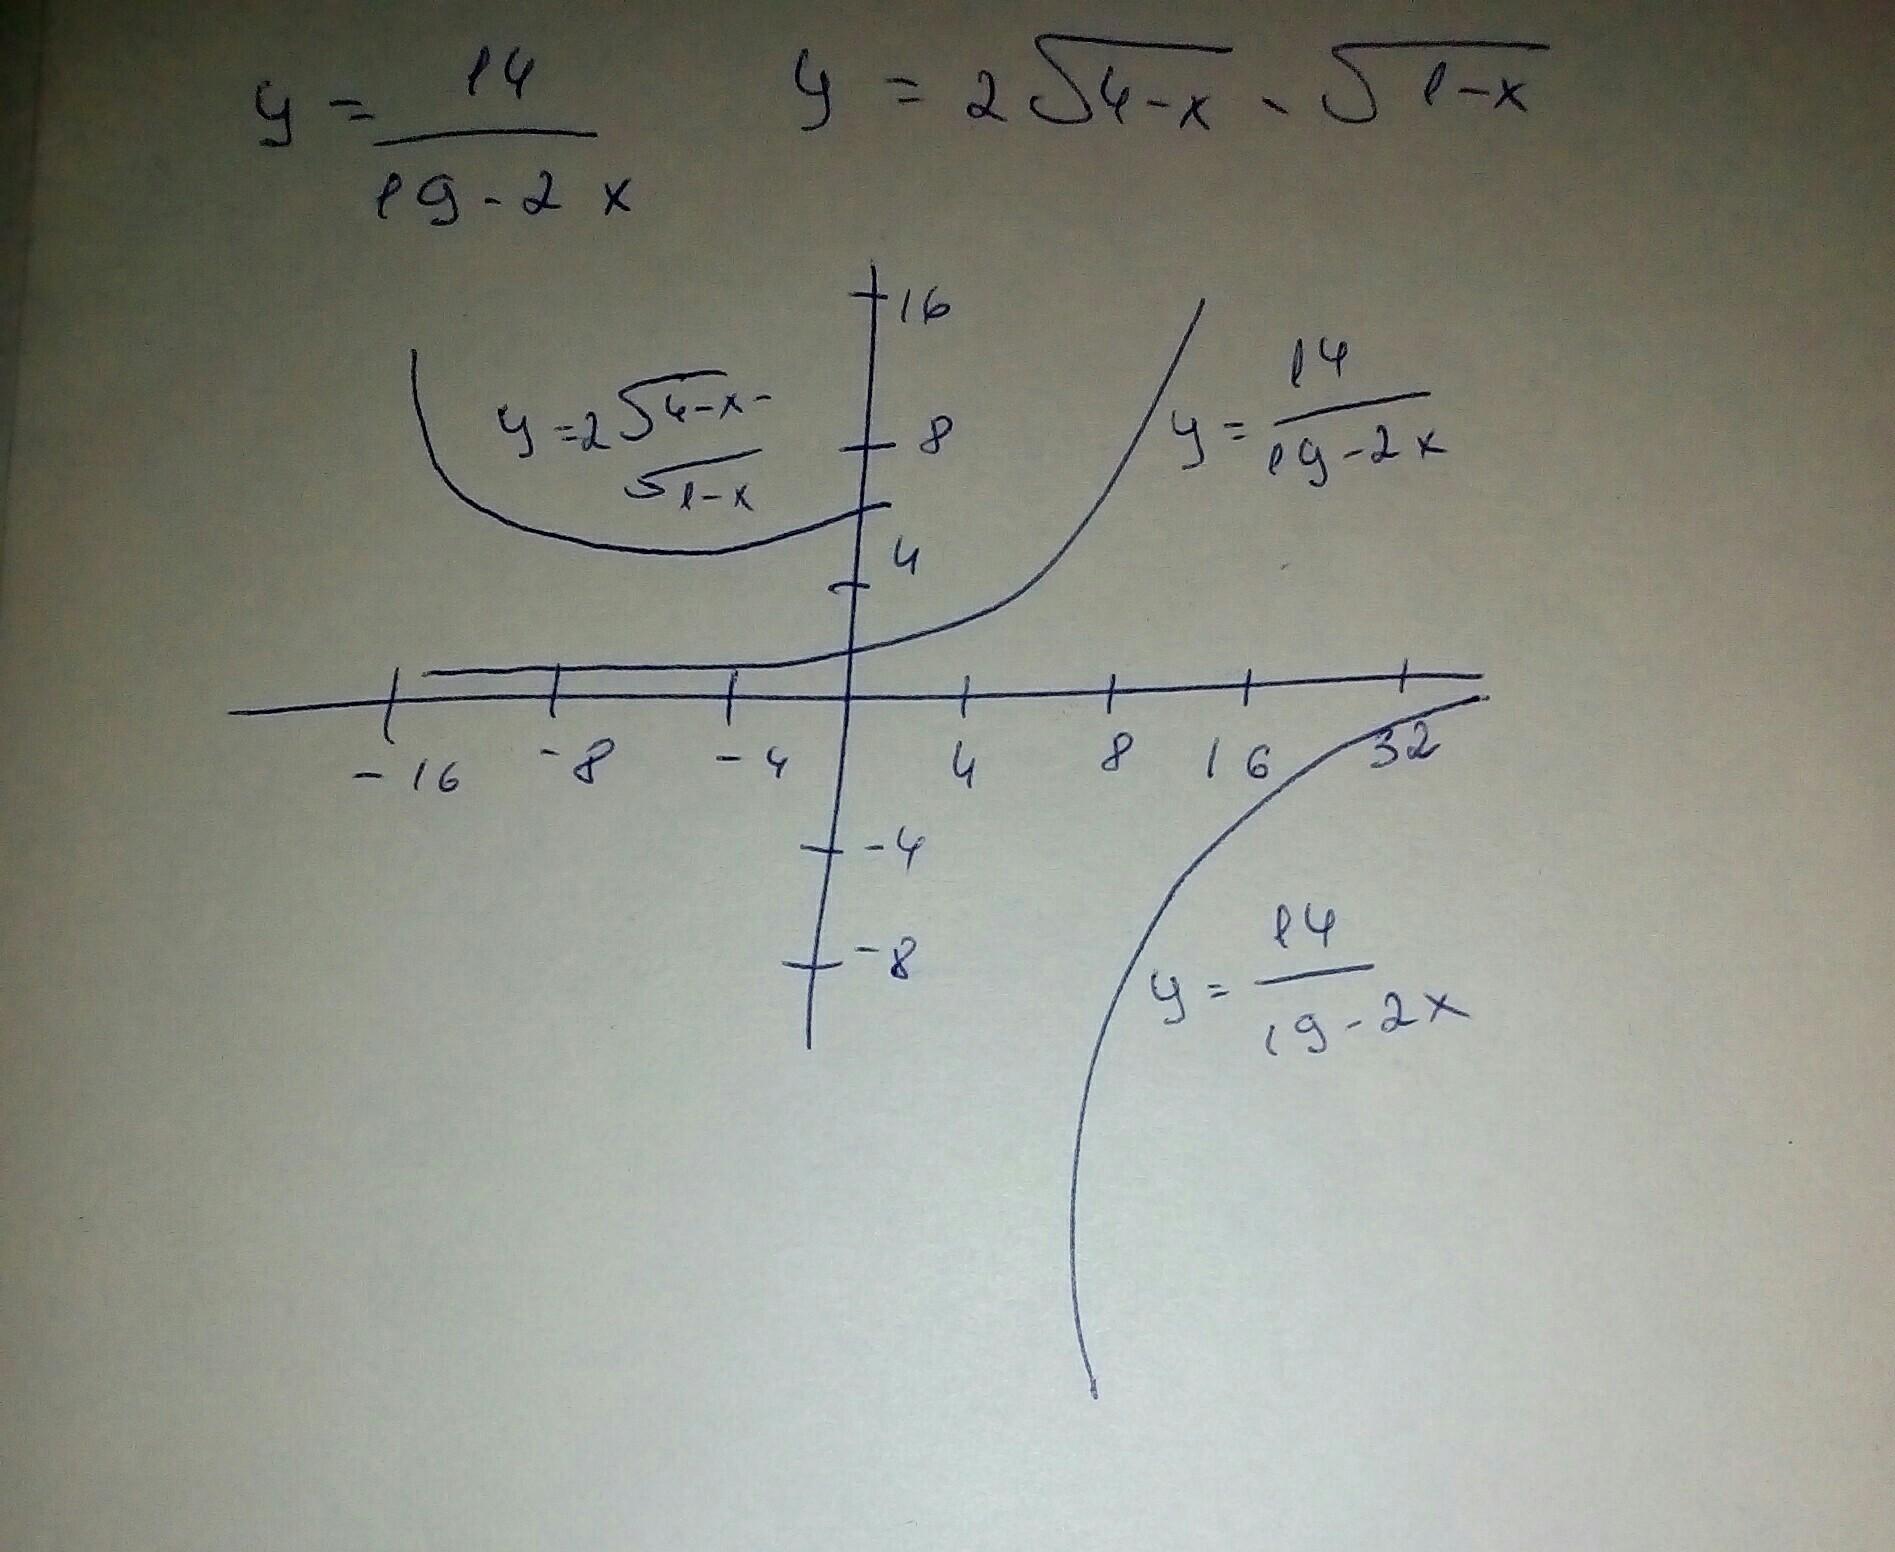 y = 14/(19-2x)    y = 2√(4-x) - √(1-x)
16
y = 2√(4-x) -
√(1-x)
8
y = 14/(19-2x)
4
-16 -8 -4 4 8 16 32
-4
-8
y = 14/(19-2x)